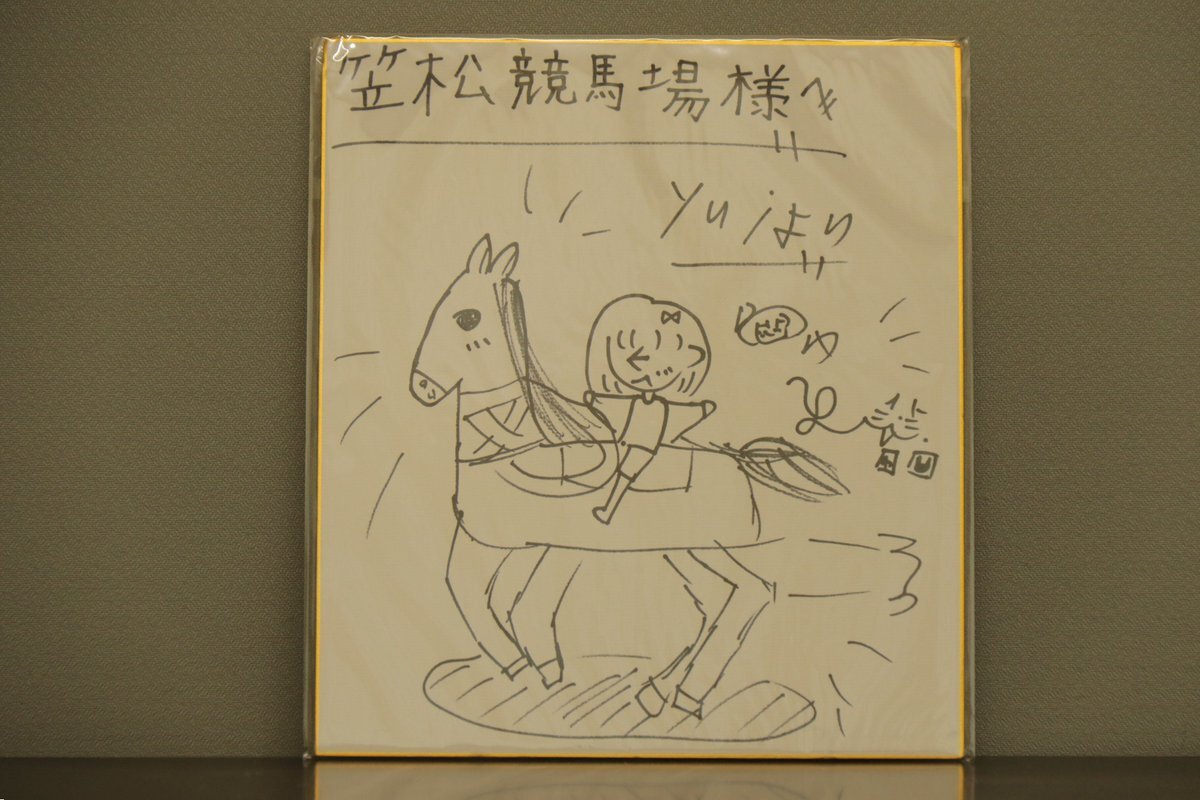 笠松競馬場様へ
yuiより